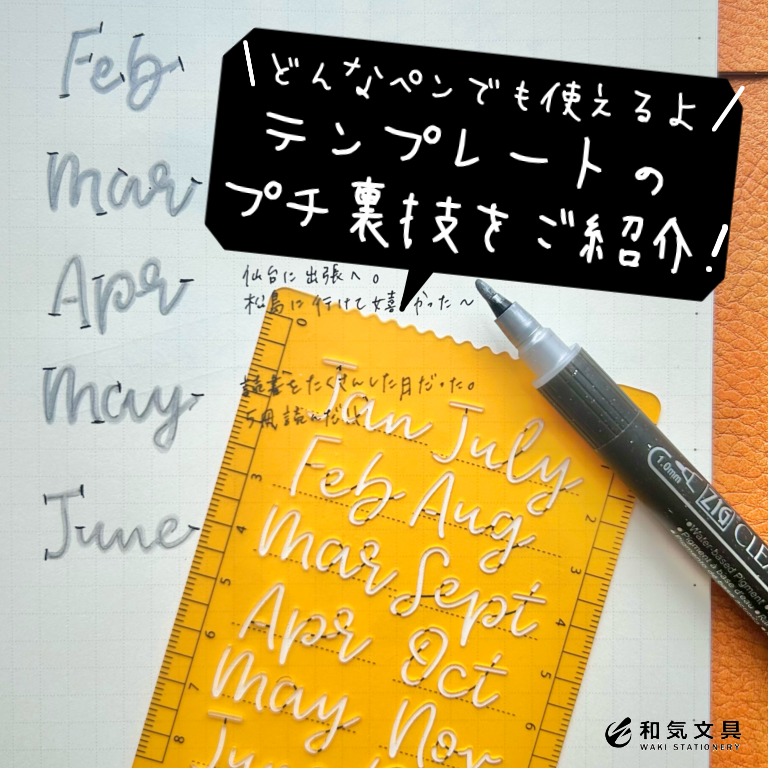 \どんなペンでも使えるよ/
テンプレートの
プチ裏技をご紹介!
Feb
Mar
Apr
May
June
仙台に出張へ。
松島に行けて嬉しかった〜
読書をたくさんした月だった。
5冊読んだ
0
Jan July
Feb Aug
Mar Sept
Apr Oct
May Nov
June
3
5
6
7
8
1
2
3
4
5
6
1.0mm
ZIG CLEA
Water-based Pigment
Pigment à base d'eau
和気文具
WAKI STATIONERY